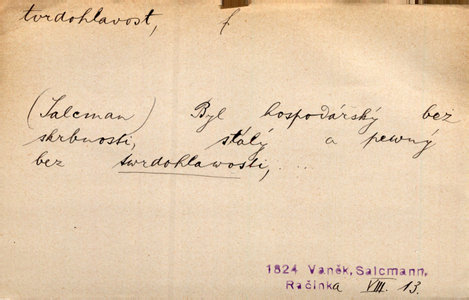 tvrdohlavost, f
(Salcman) Byl hospodářský bez
skrbnosti, stálý a pewný
bez twrdohlawosti, ...
1824 Vaněk, Salcmann,
Račinka VIII. 13.